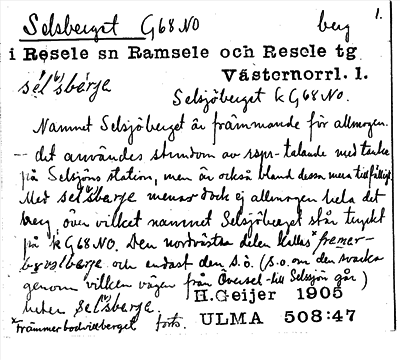 1.
Selsberget G68NO berg
i Resele sn Ramsele och Resele tg
Västernorrl. l.
Selsjöberget k G68NO.
Namnet Selsjöberget är främmande för allmogen
— det användes stundom av rspr-talande med tanke
på Selsjöns station, men är också bland dessa mera tillfälligt
Med menar dock ej allmogen hela det
berg, över vilket namnet Selsjöberget står tryckt
på k G68NO. Den nordvästra delen kallas
och endast den s.ö. (s.o. om den svacka
genom vilken vägen från Översel till Selsjön går)
heter
H.Geijer 1905
forts. ULMA 508:47